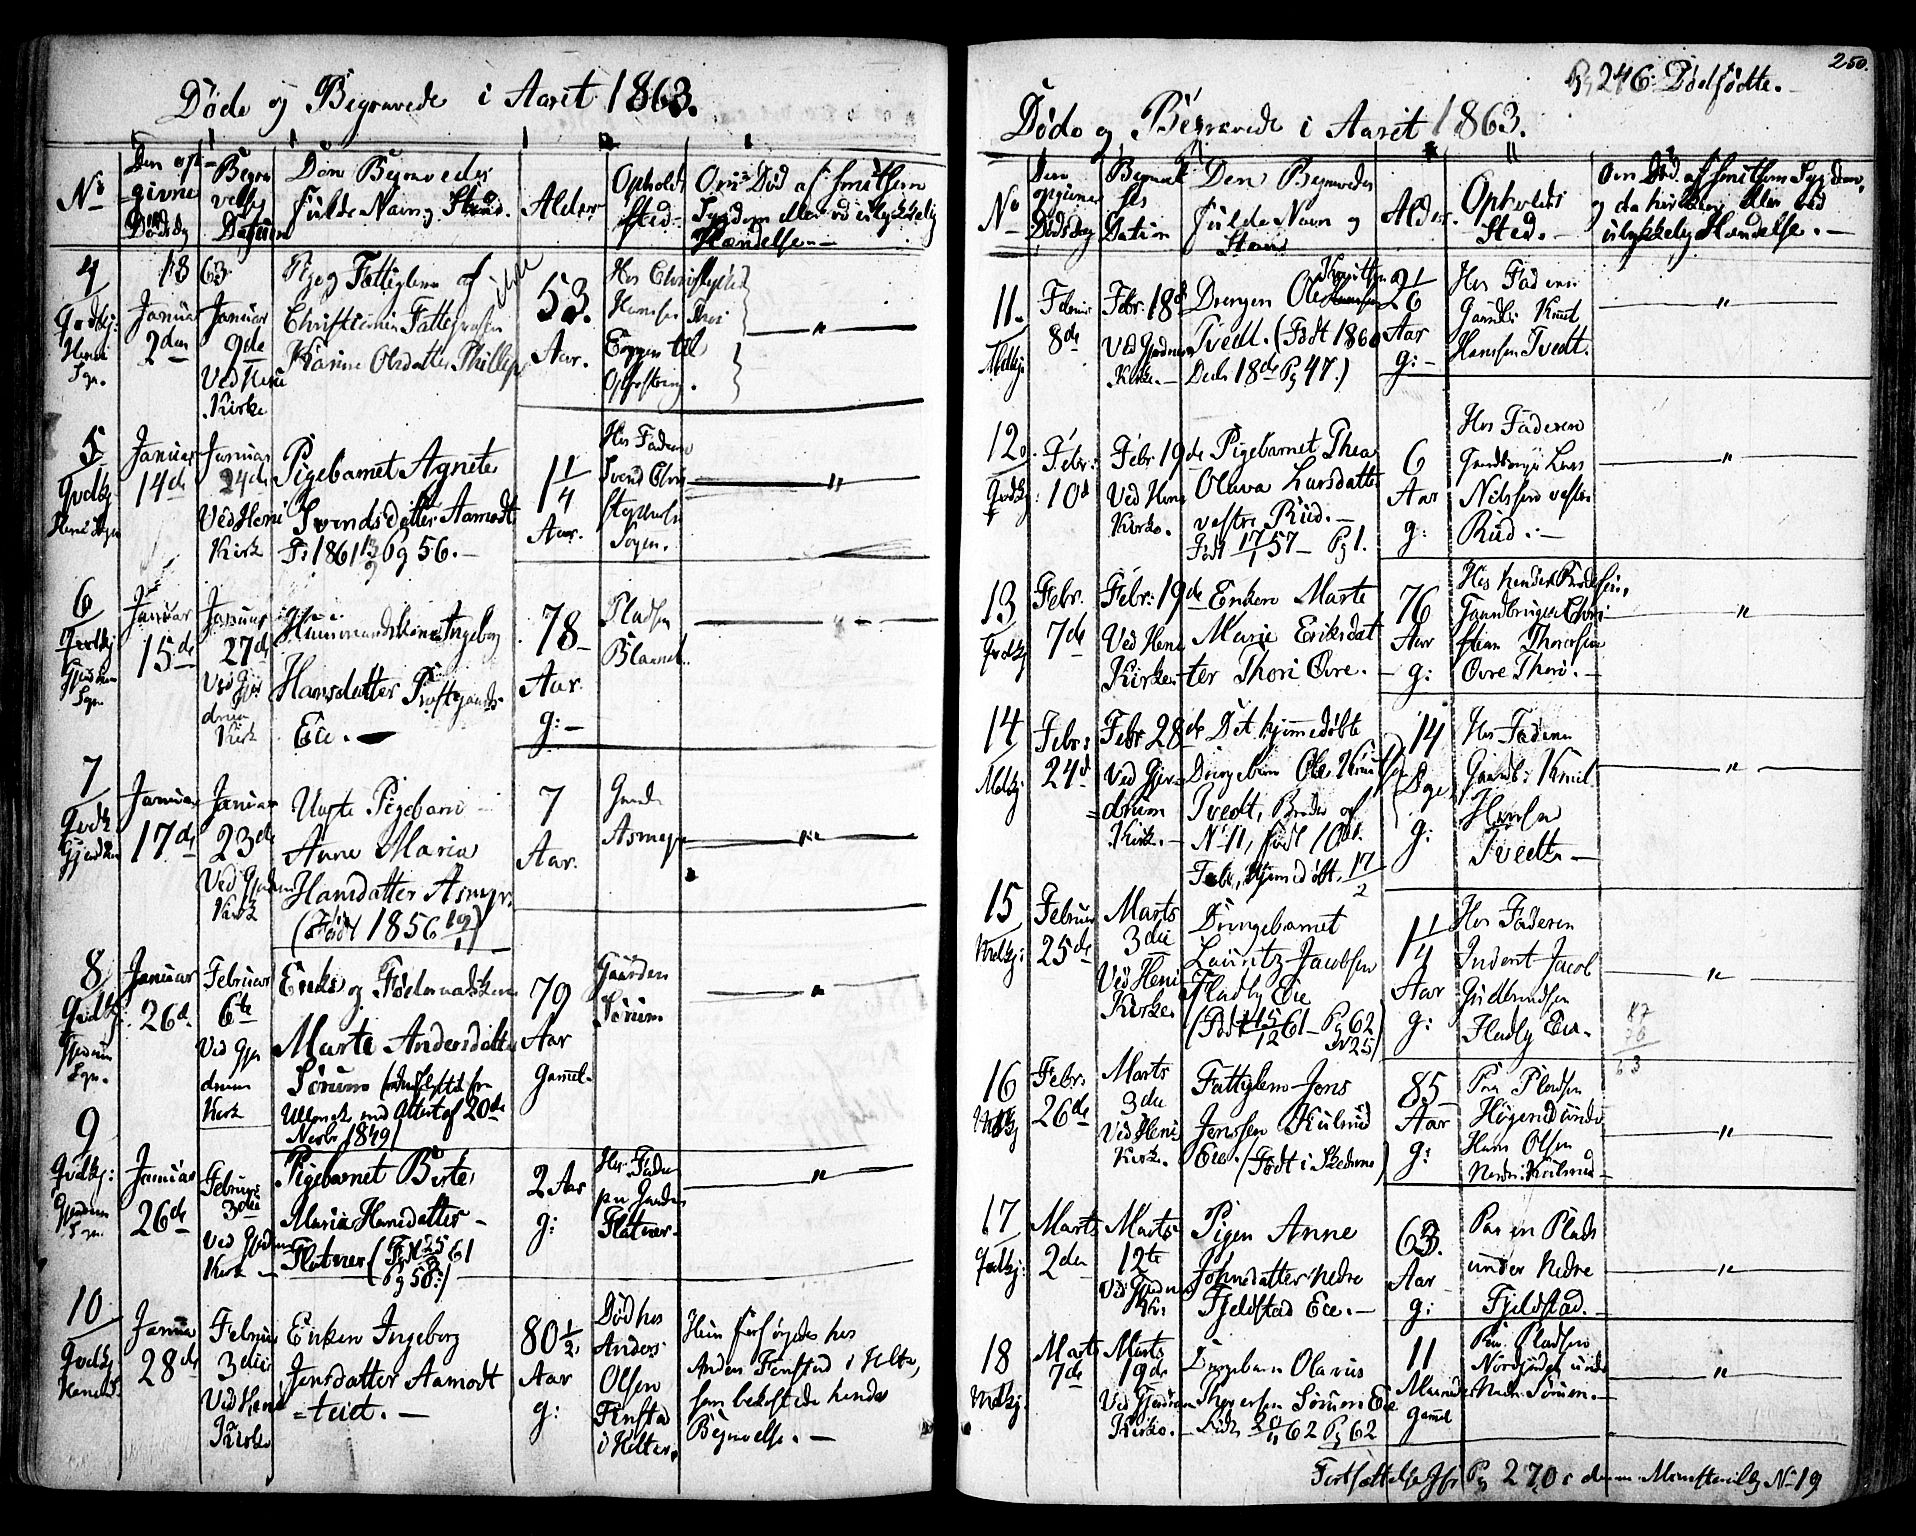 Døde og Begravede i Aaret 1863.
No
Den op-
givne
Dødsdag
Begra
velses
Datum
Den Begravedes
fulde Navn og Stand.
Alder
Opholds
sted
Om Død af smitsom
Sygdom eller ved ulykkelig
Hændelse.—
4
Qvdkj:
Heni
Sgn.
1863
Januar
2den
Januar
9de
Ved Heni
Kirke
Pige og Fattiglem af
53.
Aar.
Hos Christopher
Hansen
til
5
Qvdkj
Heni Sogn
Januar
14de
Januar
24de
Ved Heni
Kirk
Pigebarnet Agnete
Svendsdatter Aamodt
Fs 1861 13/9 Pg 56.—
1 1/4
Aar.
Hos Faderen
Svend
"
6
Qvdkj
Gjerdrum
Sgn
Januar
15de
Januar
27de
Ved Gjer
drum
Kirk
Ingeborg
Hansdatter
Eie.—
78
Aar.
g:—
Pladsen
"
7
Qvdk
Gjerdrum
Januar
17de
Januar
23de
Ved Gjerdrum
Kirk
Pigebarn
Anne Maria
Hansdatter Asmyr.
(Født 1856 19/1)
7
Aar.
Gaarden
Asmyr
"
8
Qvdkj:
Gjerdrum
Sgn.
Januar
26de
Februar
6te
Ved Gjer
drum
Kirk
Enke og Føderaadskone
Marte Andersdatter
Sørum
Ullensak. med Attest af 20de
Novbr. 1849)
79
Aar
Gamel.
Gaarden
Sørum
"
9
Qvdkj:
Gjerdrum
Sgn.
Januar
26de
Februar
3die
Ved Gjerdrum
Kirk
Pigebarnet Birte
Maria Hansdatter
Flatner (Født 25/3 61
Pg 58.)
2 Aar
g:
Hos Faderen
paa Gaarden
Flatner.
"
10
Qvdkj
Januar
28de
Februar
3die
Ved Heni
Kirke
Enken Ingeborg
Jensdatter Aamodt
=teiet.—
80 1/2
Aar
g:
Død hos
Anders
Olsen
Finstad
i Holter.
Hun forsørgedes hos
Anders Finstad i Holter,
som bekostede hendes
Begravelse.—
250.
Pg 246: Dødfødte.—
Døde og Begravede i Aaret 1863.
No
Den
opgivne
Dødsdag
Begravel
ses
Datum
Den Begravedes
fulde Navn og
Stand
Alder.
Opholds
Sted.—
Om Død af smitsom Sygdom,
og da hvilken, eller ved
ulykkelig Hændelse.—
11.
Mdkj:
Februar
8de
Febr: 18de
Ved Gjerdrum
Kirke.—
Drengen Ole Knutsen
Tvedt. (Født 1860
Decb. 18de Pg 47.)
Aar
g:—
Hos Faderen
Gaardbr: Knut
Hansen Tvedt.
"
12.
Qvdkj:
Febr:
10de
Febr. 19de
Ved Heni
Kirke.
Pigebarnet Thea
Olava Larsdatter
vestre Rud.—
Født 17/1 57— Pg 1.
6
Aar
g:
Hos Faderen
Gaardbruger Lars
Nilssen vestre
Rud.—
"
13
Qvdkj
Febr.
7de
Febr: 19de
Ved Heni
Kirke
Enken Marte
Marie Eriksdat
ter Thori Øvre.—
76
Aar
g:
Hos hendes
Gaardbruger Chri-
stian Thoresen
Øvre Thori.—
"
14
Mdkj:
Febr:
24de
Febr. 28de
Ved Gjer=
=drum
Kirk.—
Det hjemmedøbte
Drengebarn Ole Knutsen
Tvedt, Broder af
No 11, født 10de
Febr, hjemmedøbt. 17/2
14
Dage
g:
Hos Faderen
Gaardb: Knut
Hansen
Tvedt.—
"
15
Mdkj:
Februar
25de
Marts
3die
Ved Heni
Kirke.
Drengebarnet
Lauritz Jacobsen
Fladby Eie
(Født 15/12 61— Pg 62
Nr 25)
1 1/4
Aar
g:
Hos Faderen
Inderst Jacob
Gudbrandsen
Fladby Eie.
"
16
Mdkj
Febr.
26de
Marts
3die
Ved Heni
Kirke.
Fattiglem Jens
Jenssen Kulsrud
Eie. (Født i Skedsmo)
85
Aar
g:
Paa Pladsen
Hans Olsen
Nedre Kulsrud.
"
17
Qvdkj:
Marts
2den
Marts
12te
Ved Gjerdrum
Kk:
Pigen Anne
Johnsdatter nedre
Fjeldstad Eie.—
63.
Aar
g:
Paa en Plads
under Nedre
Fjeldstad.—
"
18
Mdkj:
Marts
7de
Marts
19de
Ved Gjerdrum
Kirke.—
Drengebarn Olavus
Sørum Eie
62 Pg 62
11
Maaneder
gamel
Paa Pladsen
under
Nedre Sørum.—
"
Fortsættelse Pg 270 i denne Ministerialbg No 19